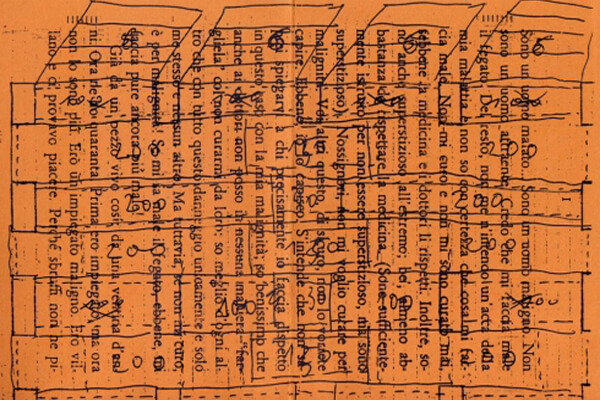 Sono un uomo malato... Sono un uomo maligno. Non
sono un uomo attraente. Credo che mi faccia male
il fegato. Del resto, non me n'intendo un'acca della
mia malattia e non so con certezza che cosa mi fac-
cia male. Non mi curo e non mi sono curato mai,
sebbene la medicina e i dottori li rispetti. Inoltre, so-
no anche superstizioso all'estremo; be', almeno ab-
bastanza da rispettare la medicina. (Sono sufficiente-
mente istruito per non essere superstizioso, ma sono
superstizioso). Nossignori, non mi voglio curare per
malignità. Voi altri questo, di sicuro, non lo
capire. Ebbene, io lo capisco. S'intende che non
spiegare a chi precisamente io faccia dispetto
in questo caso con la mia malignità; so benissimo che
anche ai dottori non posso in nessuna maniera “far-
gliela” col non curarmi da loro; so meglio d'ogni al-
tro che con tutto questo danneggio unicamente e solo
me stesso e nessun altro. Ma tuttavia, se non mi curo,
è per malignità! Se mi fa male il fegato, ebbene, mi
faccia pure ancora più male!
Già da un pezzo vivo così: da una ventina d'an-
ni. Ora ne ho quaranta. Prima ero impiegato, ma ora
non lo sono più. Ero un impiegato maligno. Ero vil-
lano e ci provavo piacere. Perché sbruffi non ne pi-